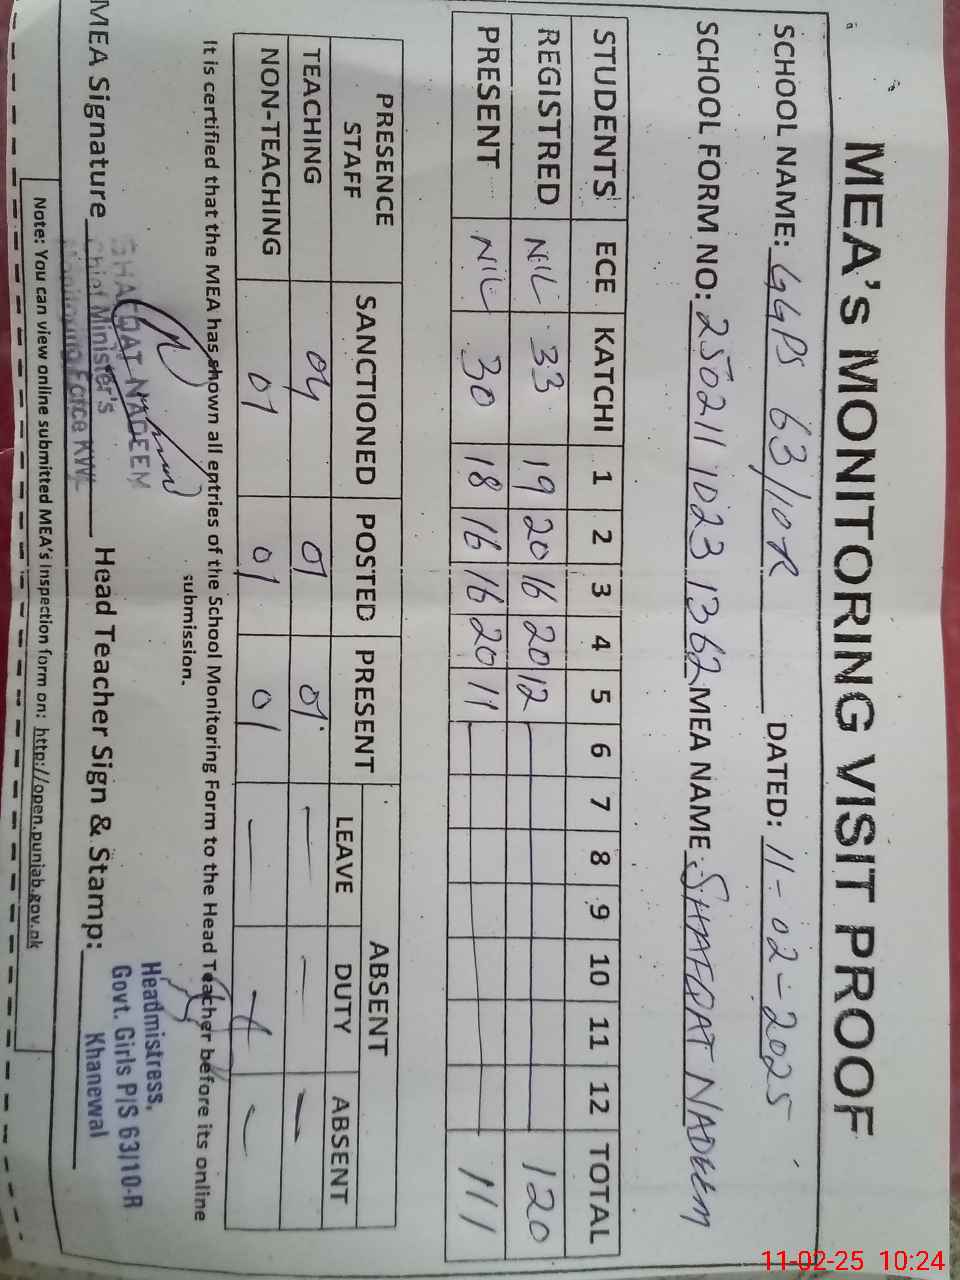 MEA's MONITORING VISIT PROOF
SCHOOL NAME: GGPS 63/10R DATED: 11-02-2025
SCHOOL FORM NO: 250211 1023 1362 MEA NAME SHAFQAT NADEEM
STUDENTS ECE KATCHI 1 2 3 4 5 6 7 8 9 10 11 12 TOTAL
REGISTRED NIL 33 19 20 16 20 12 120
PRESENT NIL 30 18 16 16 20 11 111
PRESENCE STAFF SANCTIONED POSTED PRESENT ABSENT
LEAVE DUTY ABSENT
TEACHING 04 01 01 — — —
NON-TEACHING 01 01 01 — — —
It is certified that the MEA has shown all entries of the School Monitoring Form to the Head Teacher before its online
submission.
MEA Signature Head Teacher Sign & Stamp:
SHAFQAT NADEEM
Chief Minister's
Monitoring Force KWL
Headmistress,
Govt. Girls P/S 63/10-R
Khanewal
Note: You can view online submitted MEA's inspection form on: http://open.punjab.gov.pk
11-02-25 10:24